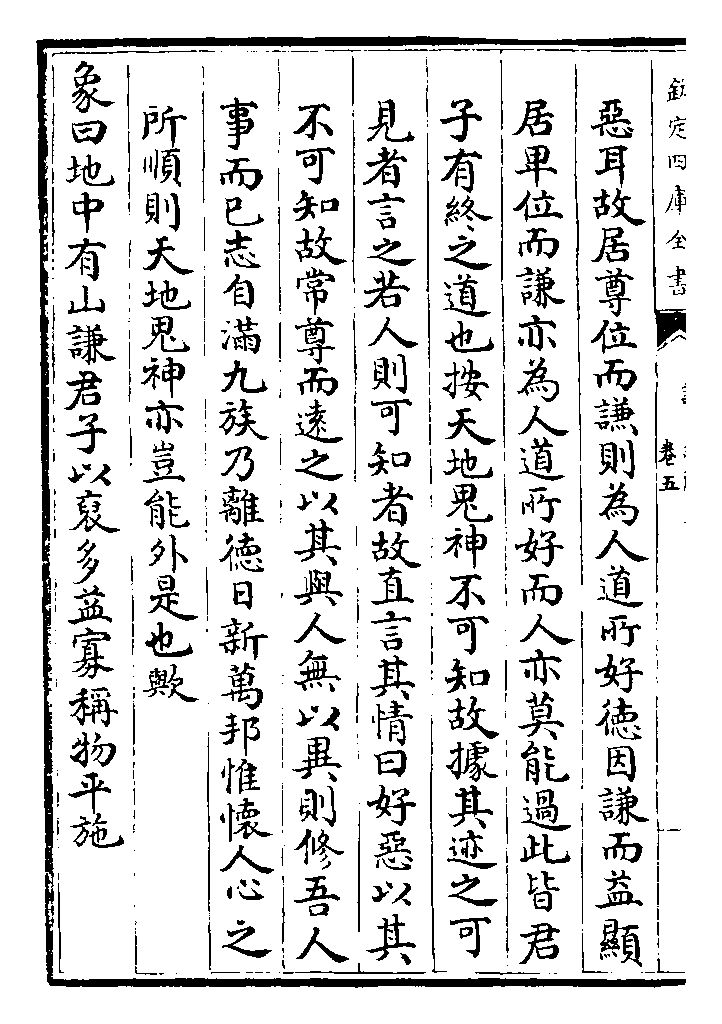 欽定四庫全書
卷五
惡耳故居尊位而謙則為人道所好徳因謙而益顯
居卑位而謙亦為人道所好而人亦莫能過此皆君
子有終之道也按天地鬼神不可知故據其迹之可
見者言之若人則可知者故直言其情曰好惡以其
不可知故常尊而遠之以其與人無以異則修吾人
事而已志自滿九族乃離德日新萬邦惟懷人心之
所順則天地鬼神亦豈能外是也歟
象曰地中有山謙君子以裒多益寡稱物平施